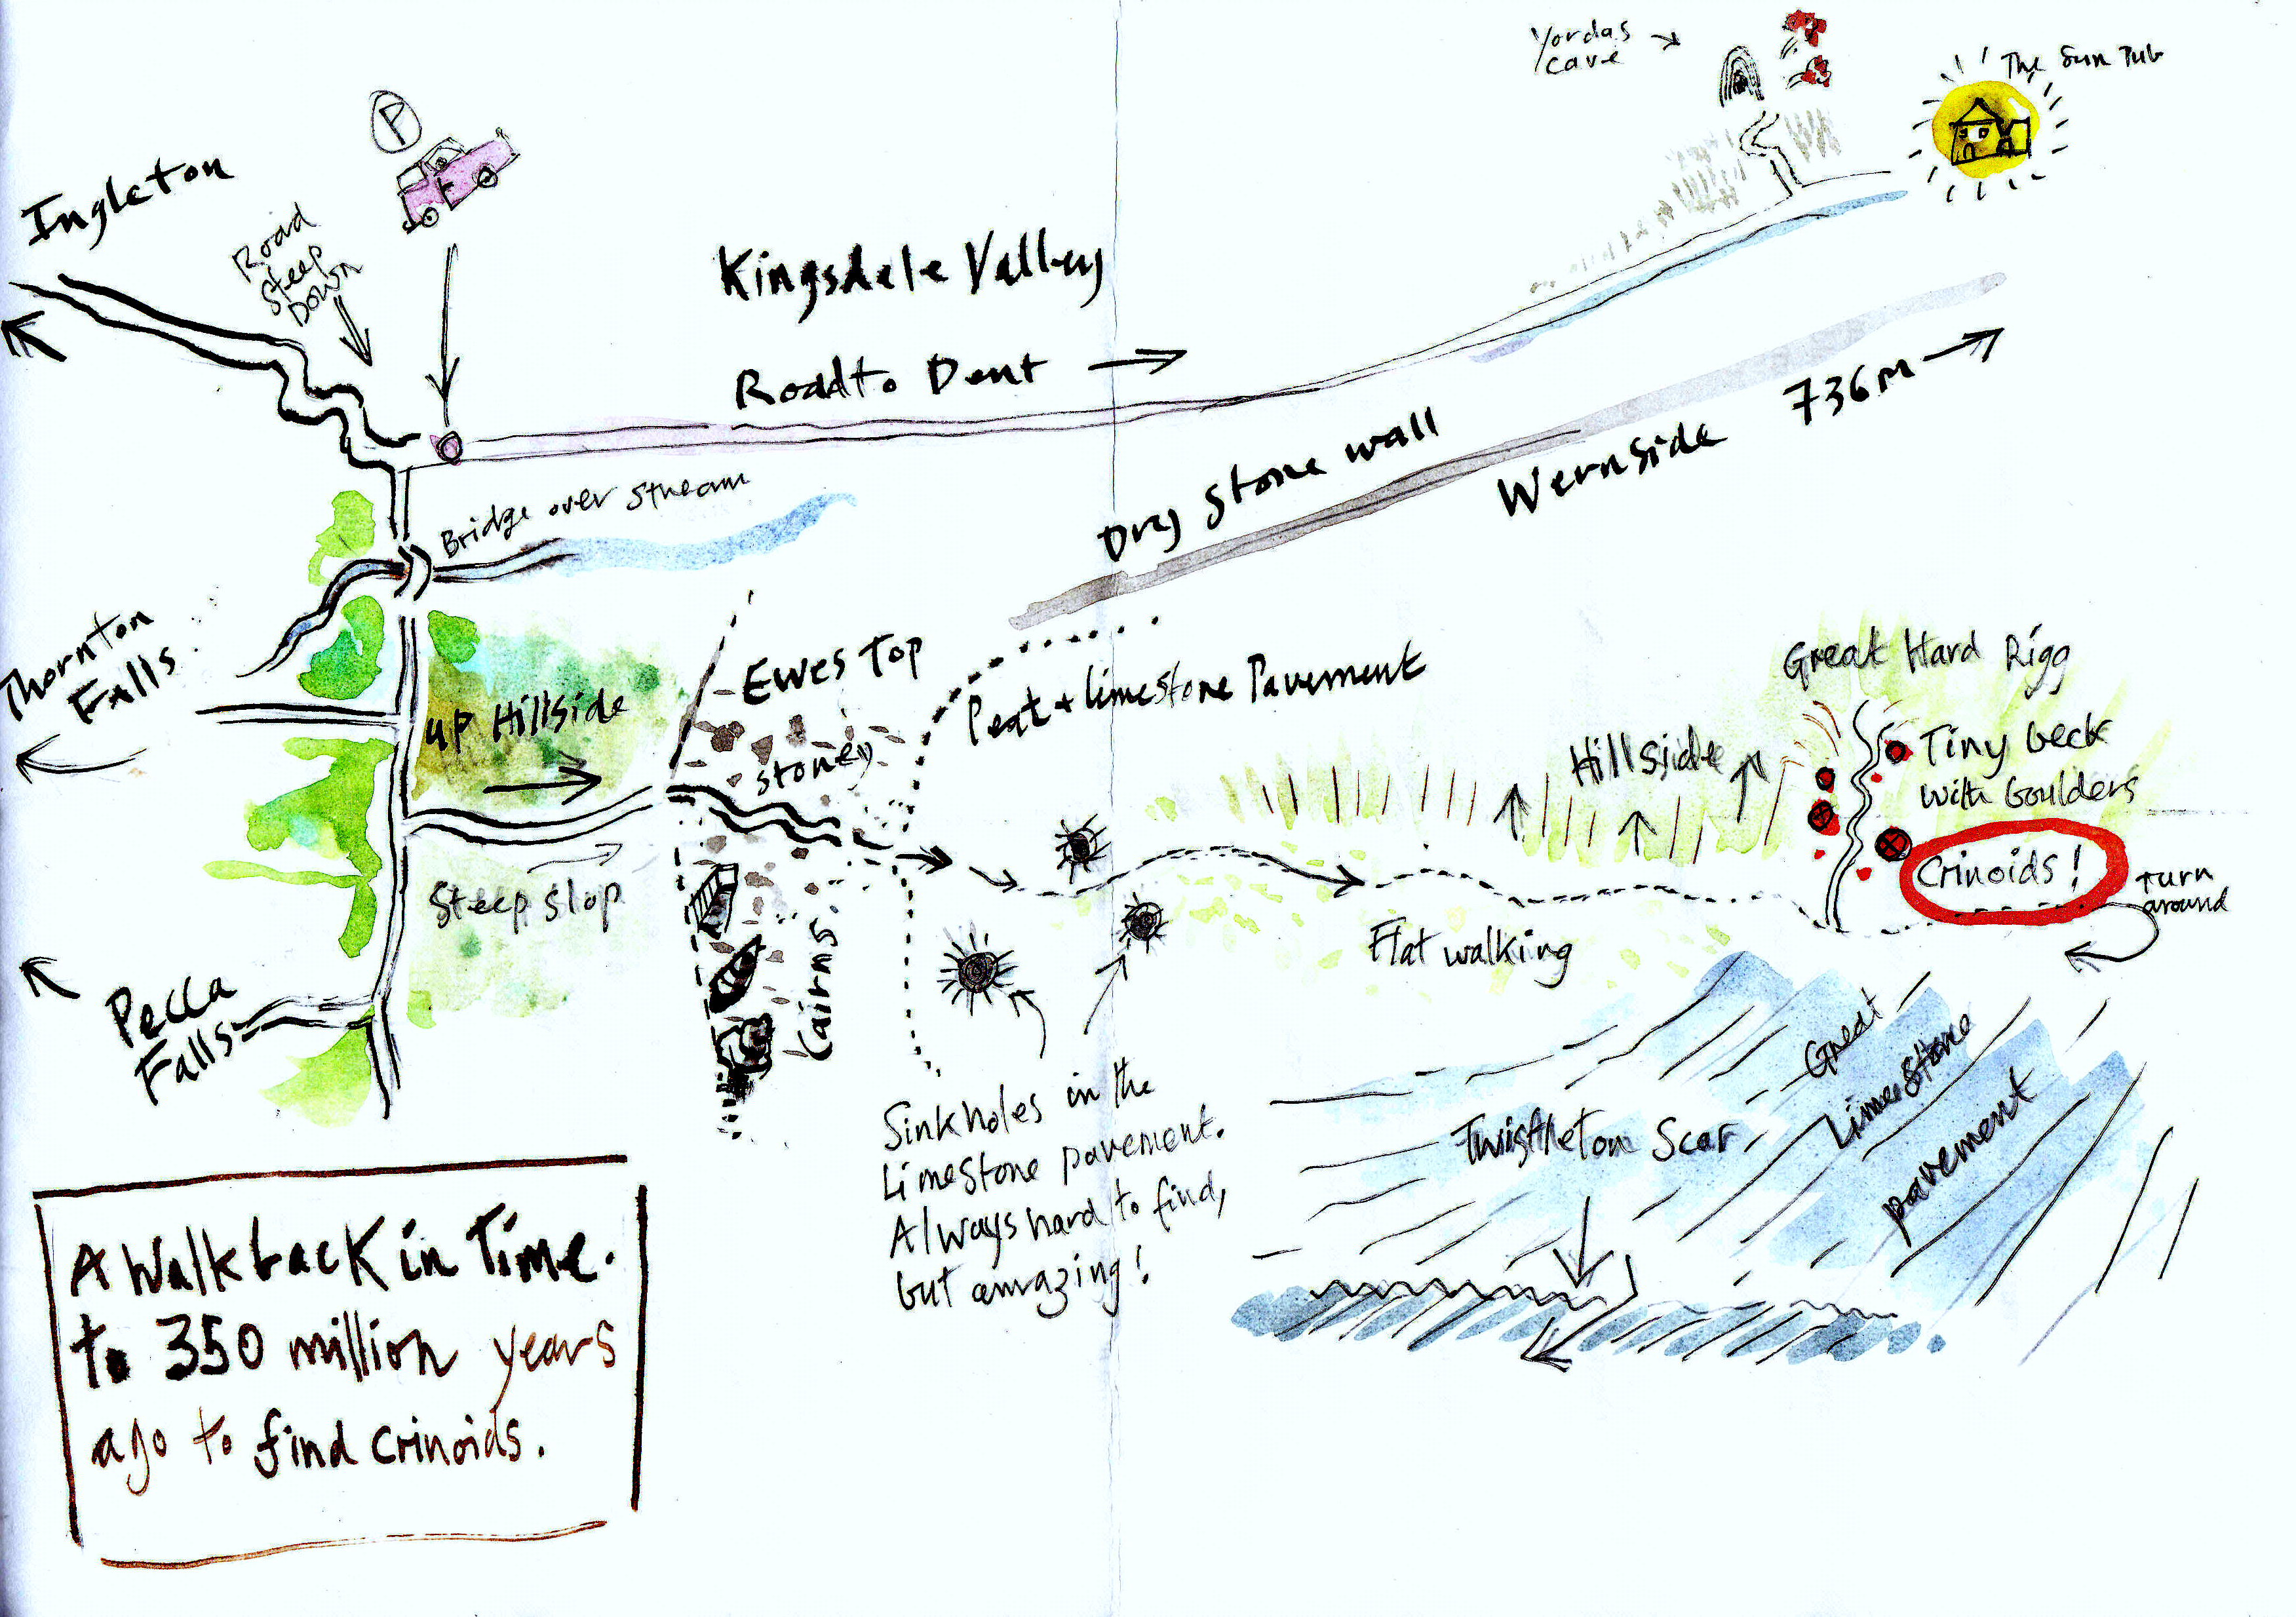 Yordas
cave
The Sun Pub
P
Ingleton
Road
Steep
Down
Kingsdale Valley
Road to Dent
Dry Stone wall
Wernside 736m
Bridge over stream
Thornton
Falls
up Hillside
Ewes Top
Stoney
Peat + limestone Pavement
Great Hard Rigg
Hillside
Tiny beck
with boulders
Crinoids!
Turn
around
Steep slop
Cairns
Flat walking
Pecca
Falls
Sinkholes in the
Limestone pavement.
Always hard to find,
but amazing!
Twistleton Scar
Great
Limestone
pavement
A Walk back in Time.
to 350 million years
ago to find crinoids.